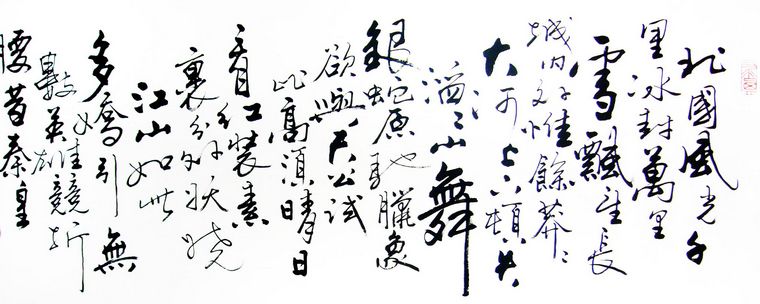 北國風光千
里冰封萬里
雪飄望長
城内外惟餘莽々
大河上下頓失
滔々山舞
銀蛇原馳臘象
欲與天公試
比高須晴日
看紅裝素
裹分外妖嬈
江山如此
多嬌引無
數英雄競折
腰昔秦皇